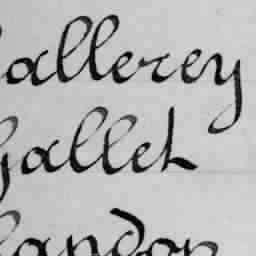 Gallerey
Gallet
Gandon